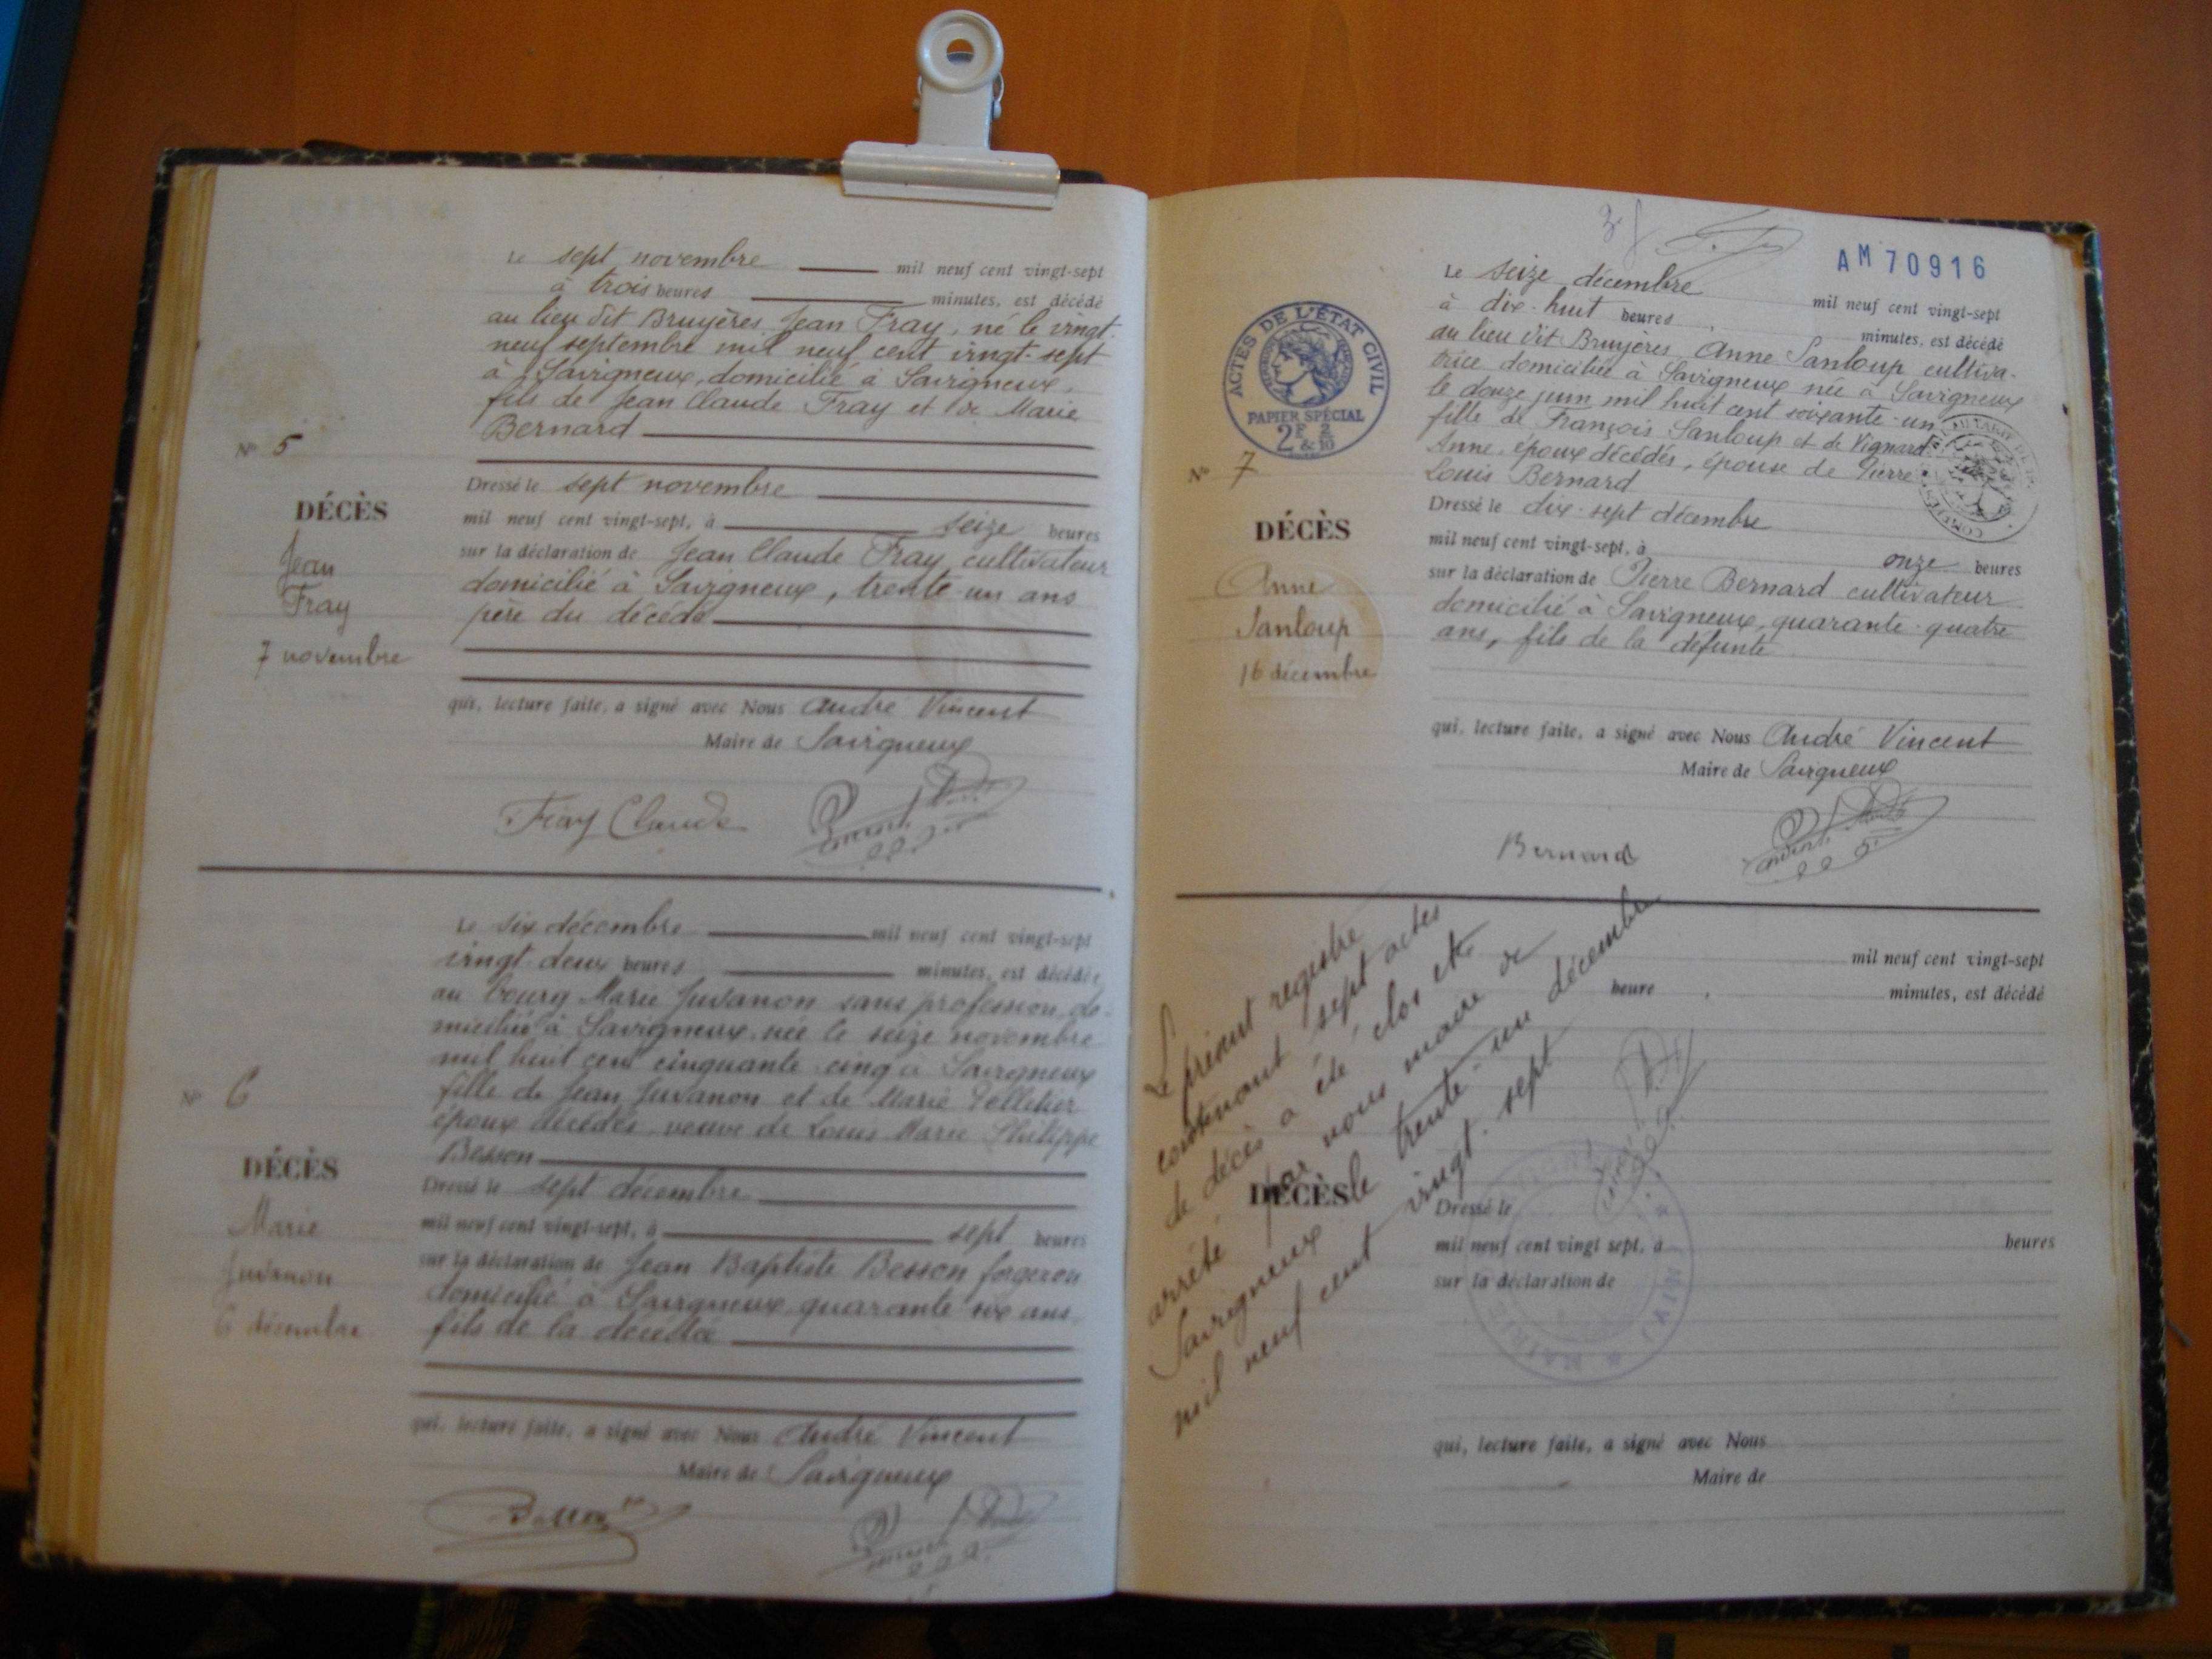 Le sept novembre mil neuf cent vingt-sept
à trois heures minutes, est décédé
au lieu dit Bruyères, Jean Fray, né le vingt-
neuf septembre mil neuf cent vingt-sept
à Savigneux, domicilié à Savigneux,
fils de Jean Claude Fray et de Marie
Bernard
N° 5
Dressé le sept novembre
DÉCÈS
mil neuf cent vingt-sept, à seize heures
sur la déclaration de Jean Claude Fray cultivateur
Jean
domicilié à Savigneux, trente-un ans
Fray
père du décédé
7 novembre
qui, lecture faite, a signé avec Nous André Vincent
Maire de Savigneux
Fray Claude
Le six décembre mil neuf cent vingt-sept
vingt-deux heures minutes, est décédée
au bourg Marie Juvanon sans profession do-
miciliée à Savigneux, née le seize novembre
mil huit cent cinquante-cinq à Savigneux
fille de Jean Juvanon et de Marie Pelletier
N° 6
époux décédés, veuve de Louis Marie Philippe
Besson
DÉCÈS
Dressé le sept décembre
Marie
mil neuf cent vingt-sept, à sept heures
Juvanon
sur la déclaration de Jean Baptiste Besson forgeron
domicilié à Savigneux, quarante six ans,
6 décembre
fils de la décédée
qui, lecture faite, a signé avec Nous André Vincent
Maire de Savigneux
Besson
AM 70916
Le seize décembre mil neuf cent vingt-sept
à dix-huit heures minutes, est décédé
au lieu dit Bruyères, Anne Sanloup cultiva-
trice domiciliée à Savigneux née à Savigneux
le douze juin mil huit cent soixante-un
fille de François Sanloup et de Vignard
Anne, époux décédés, épouse de Pierre
Louis Bernard
ACTES DE L'ÉTAT CIVIL
PAPIER SPÉCIAL
2F & 2/10
N° 7
Dressé le dix-sept décembre
DÉCÈS
mil neuf cent vingt-sept, à onze heures
Anne
sur la déclaration de Pierre Bernard cultivateur
Sanloup
domicilié à Savigneux, quarante-quatre
16 décembre
ans, fils de la défunte
qui, lecture faite, a signé avec Nous André Vincent
Maire de Savigneux
Bernard
Le présent registre
contenant sept actes
de décès a été clos et
arrêté par nous maire de
Savigneux le trente-un décembre
mil neuf cent vingt-sept
mil neuf cent vingt-sept
heure minutes, est décédé
DÉCÈS
Dressé le
mil neuf cent vingt sept, à heures
sur la déclaration de
MAIRIE
qui, lecture faite, a signé avec Nous
Maire de